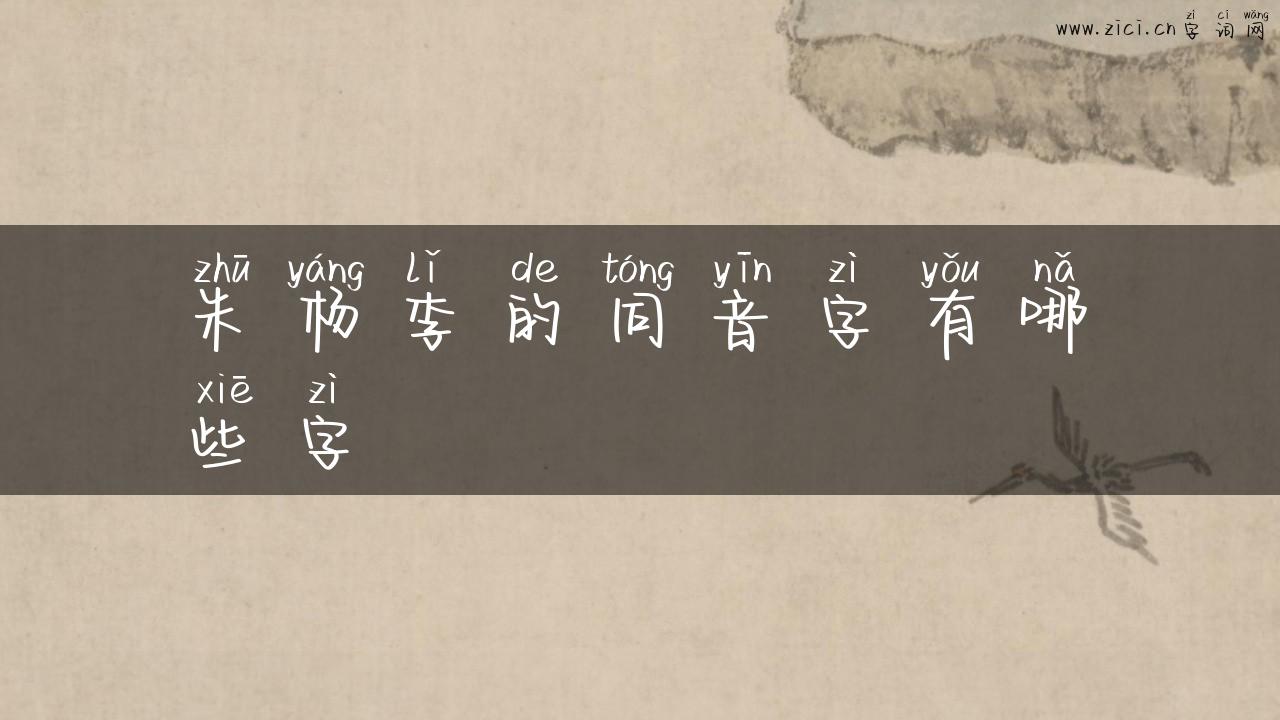 zì cí wǎng
www.zici.cn 字词网
zhū yáng lǐ de tóng yīn zì yǒu nǎ
朱杨李的同音字有哪
xiē zì
些字